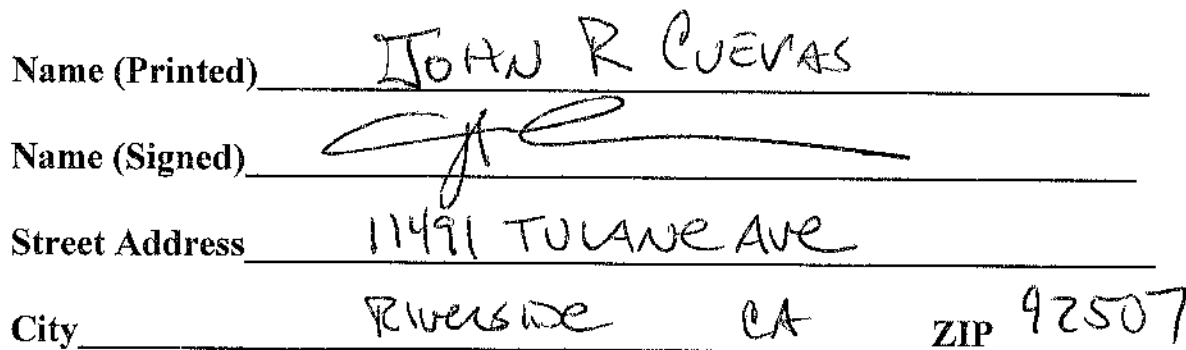 Name (Printed) JOHN R CUEVAS
Name (Signed)
Street Address 11491 TULANE AVE
City Riverside CA ZIP 92507